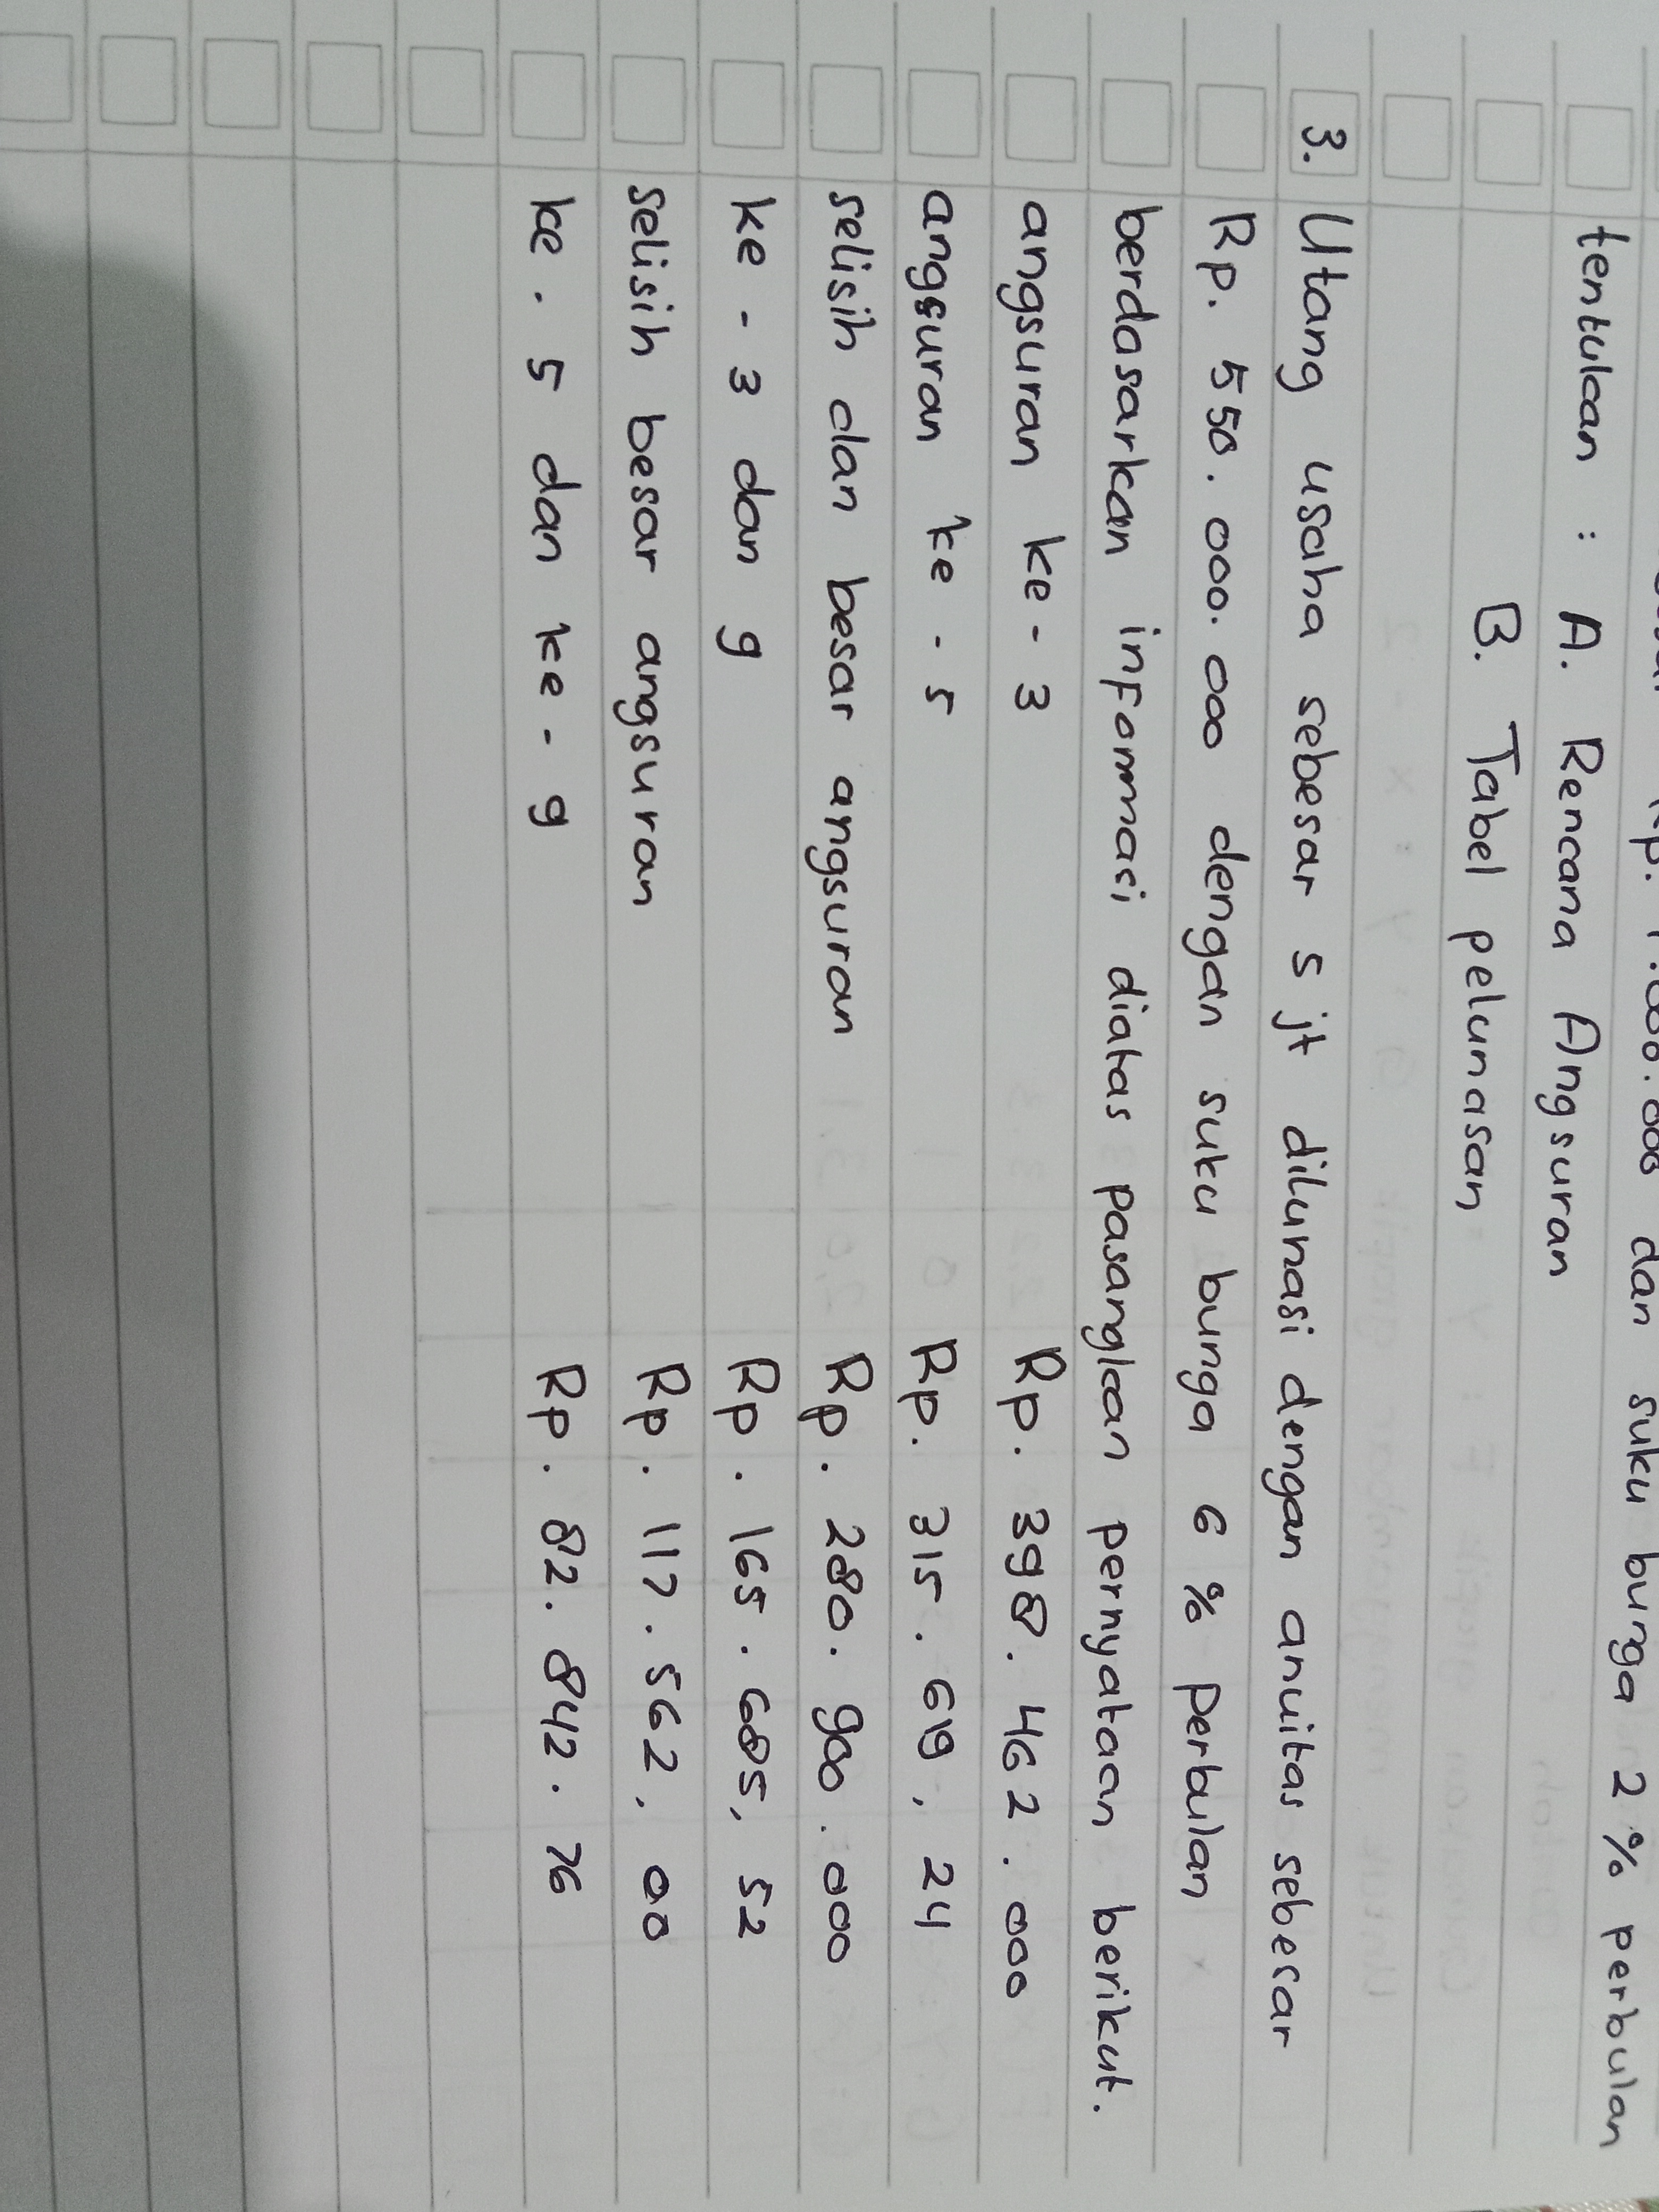 Rp. 1.000.000 dan suku bunga 2 % perbulan
tentukan : A. Rencana Angsuran
B. Tabel pelunasan
3. Utang usaha sebesar 5 jt dilunasi dengan anuitas sebesar
Rp. 550.000.000 dengan suku bunga 6 % perbulan
berdasarkan informasi diatas pasangkan pernyataan berikut.
angsuran ke - 3 Rp. 398.462.000
angsuran ke - 5 Rp. 315.619, 24
selisih dan besar angsuran Rp. 280.900.000
ke - 3 dan 9 Rp. 165.685, 52
selisih besar angsuran Rp. 117.562, 00
ke. 5 dan ke - 9 Rp. 82.842.76